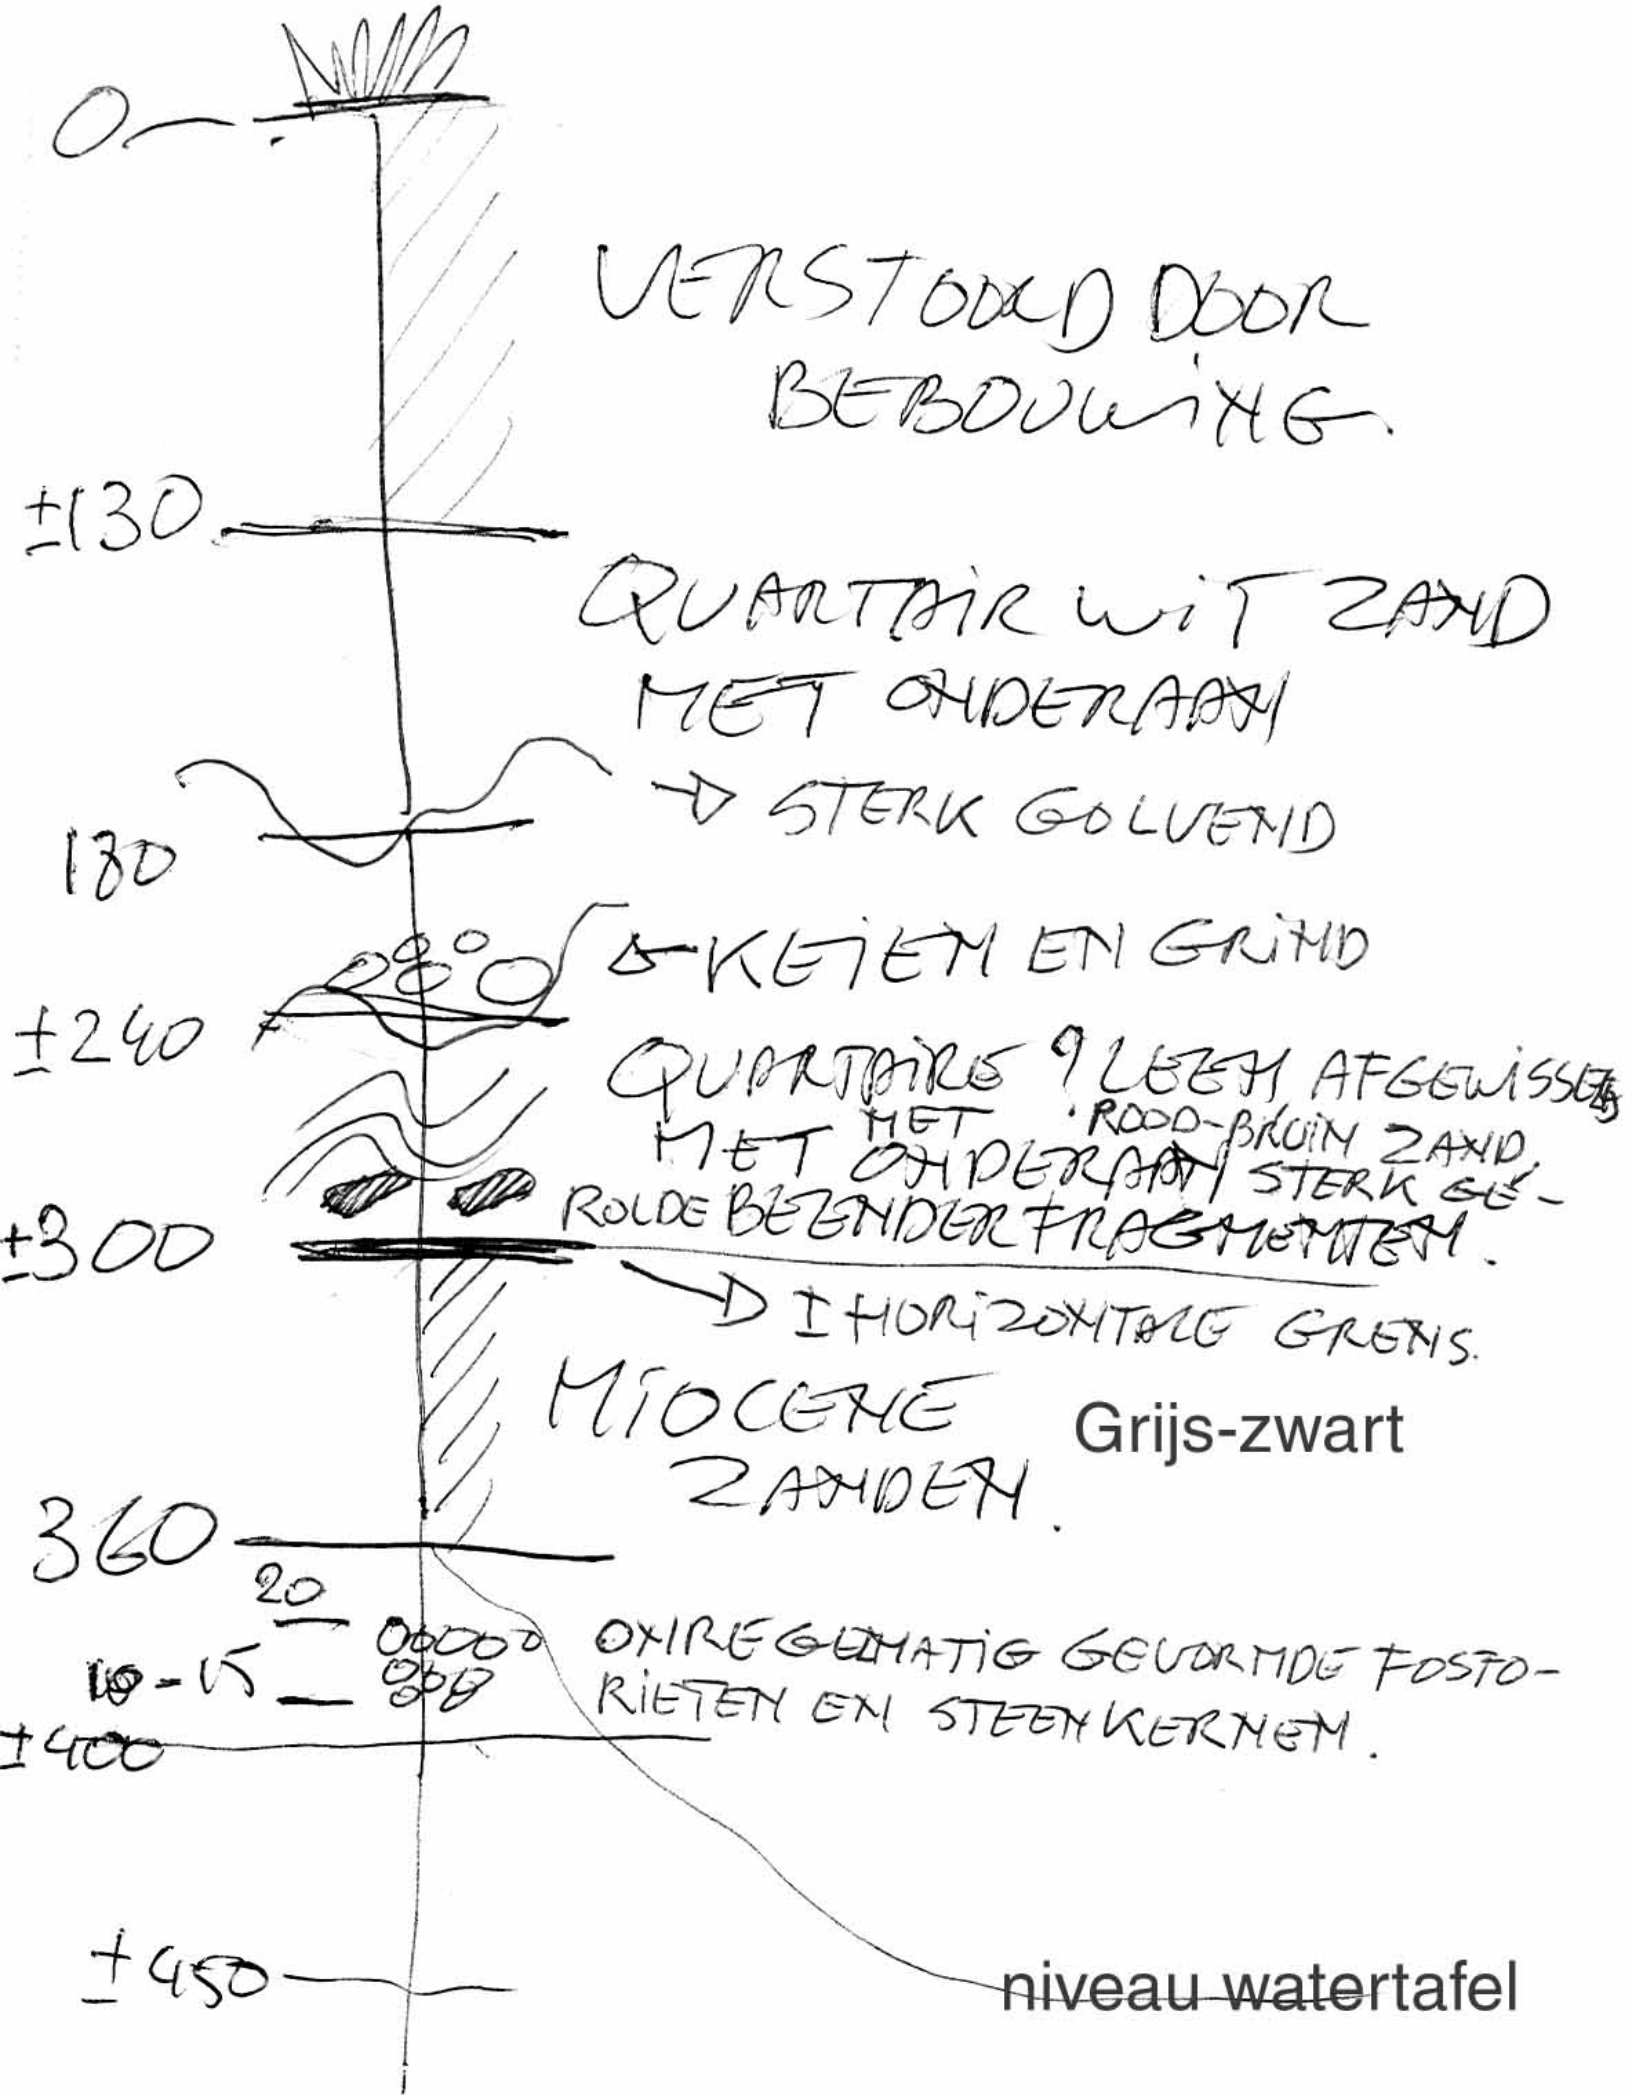 0
VERSTOORD DOOR
BEBOUWING.
±130
QUARTAIR WIT ZAND
MET ONDERAAN
STERK GOLVEND
180
KEIEN EN GRIND
±240
QUARTAIRE ? LEEM AFGEWISSELD
MET ROOD-BRUIN ZAND
MET ONDERAAN STERK GE-
ROLDE BEENDERFRAGMENTEN.
±300
± HORIZONTALE GRENS.
MIOCENE
Grijs-zwart
ZANDEN.
360
20
10-15
ONREGELMATIG GEVORMDE FOSFO-
RIETEN EN STEENKERNEN.
±400
±450
niveau watertafel